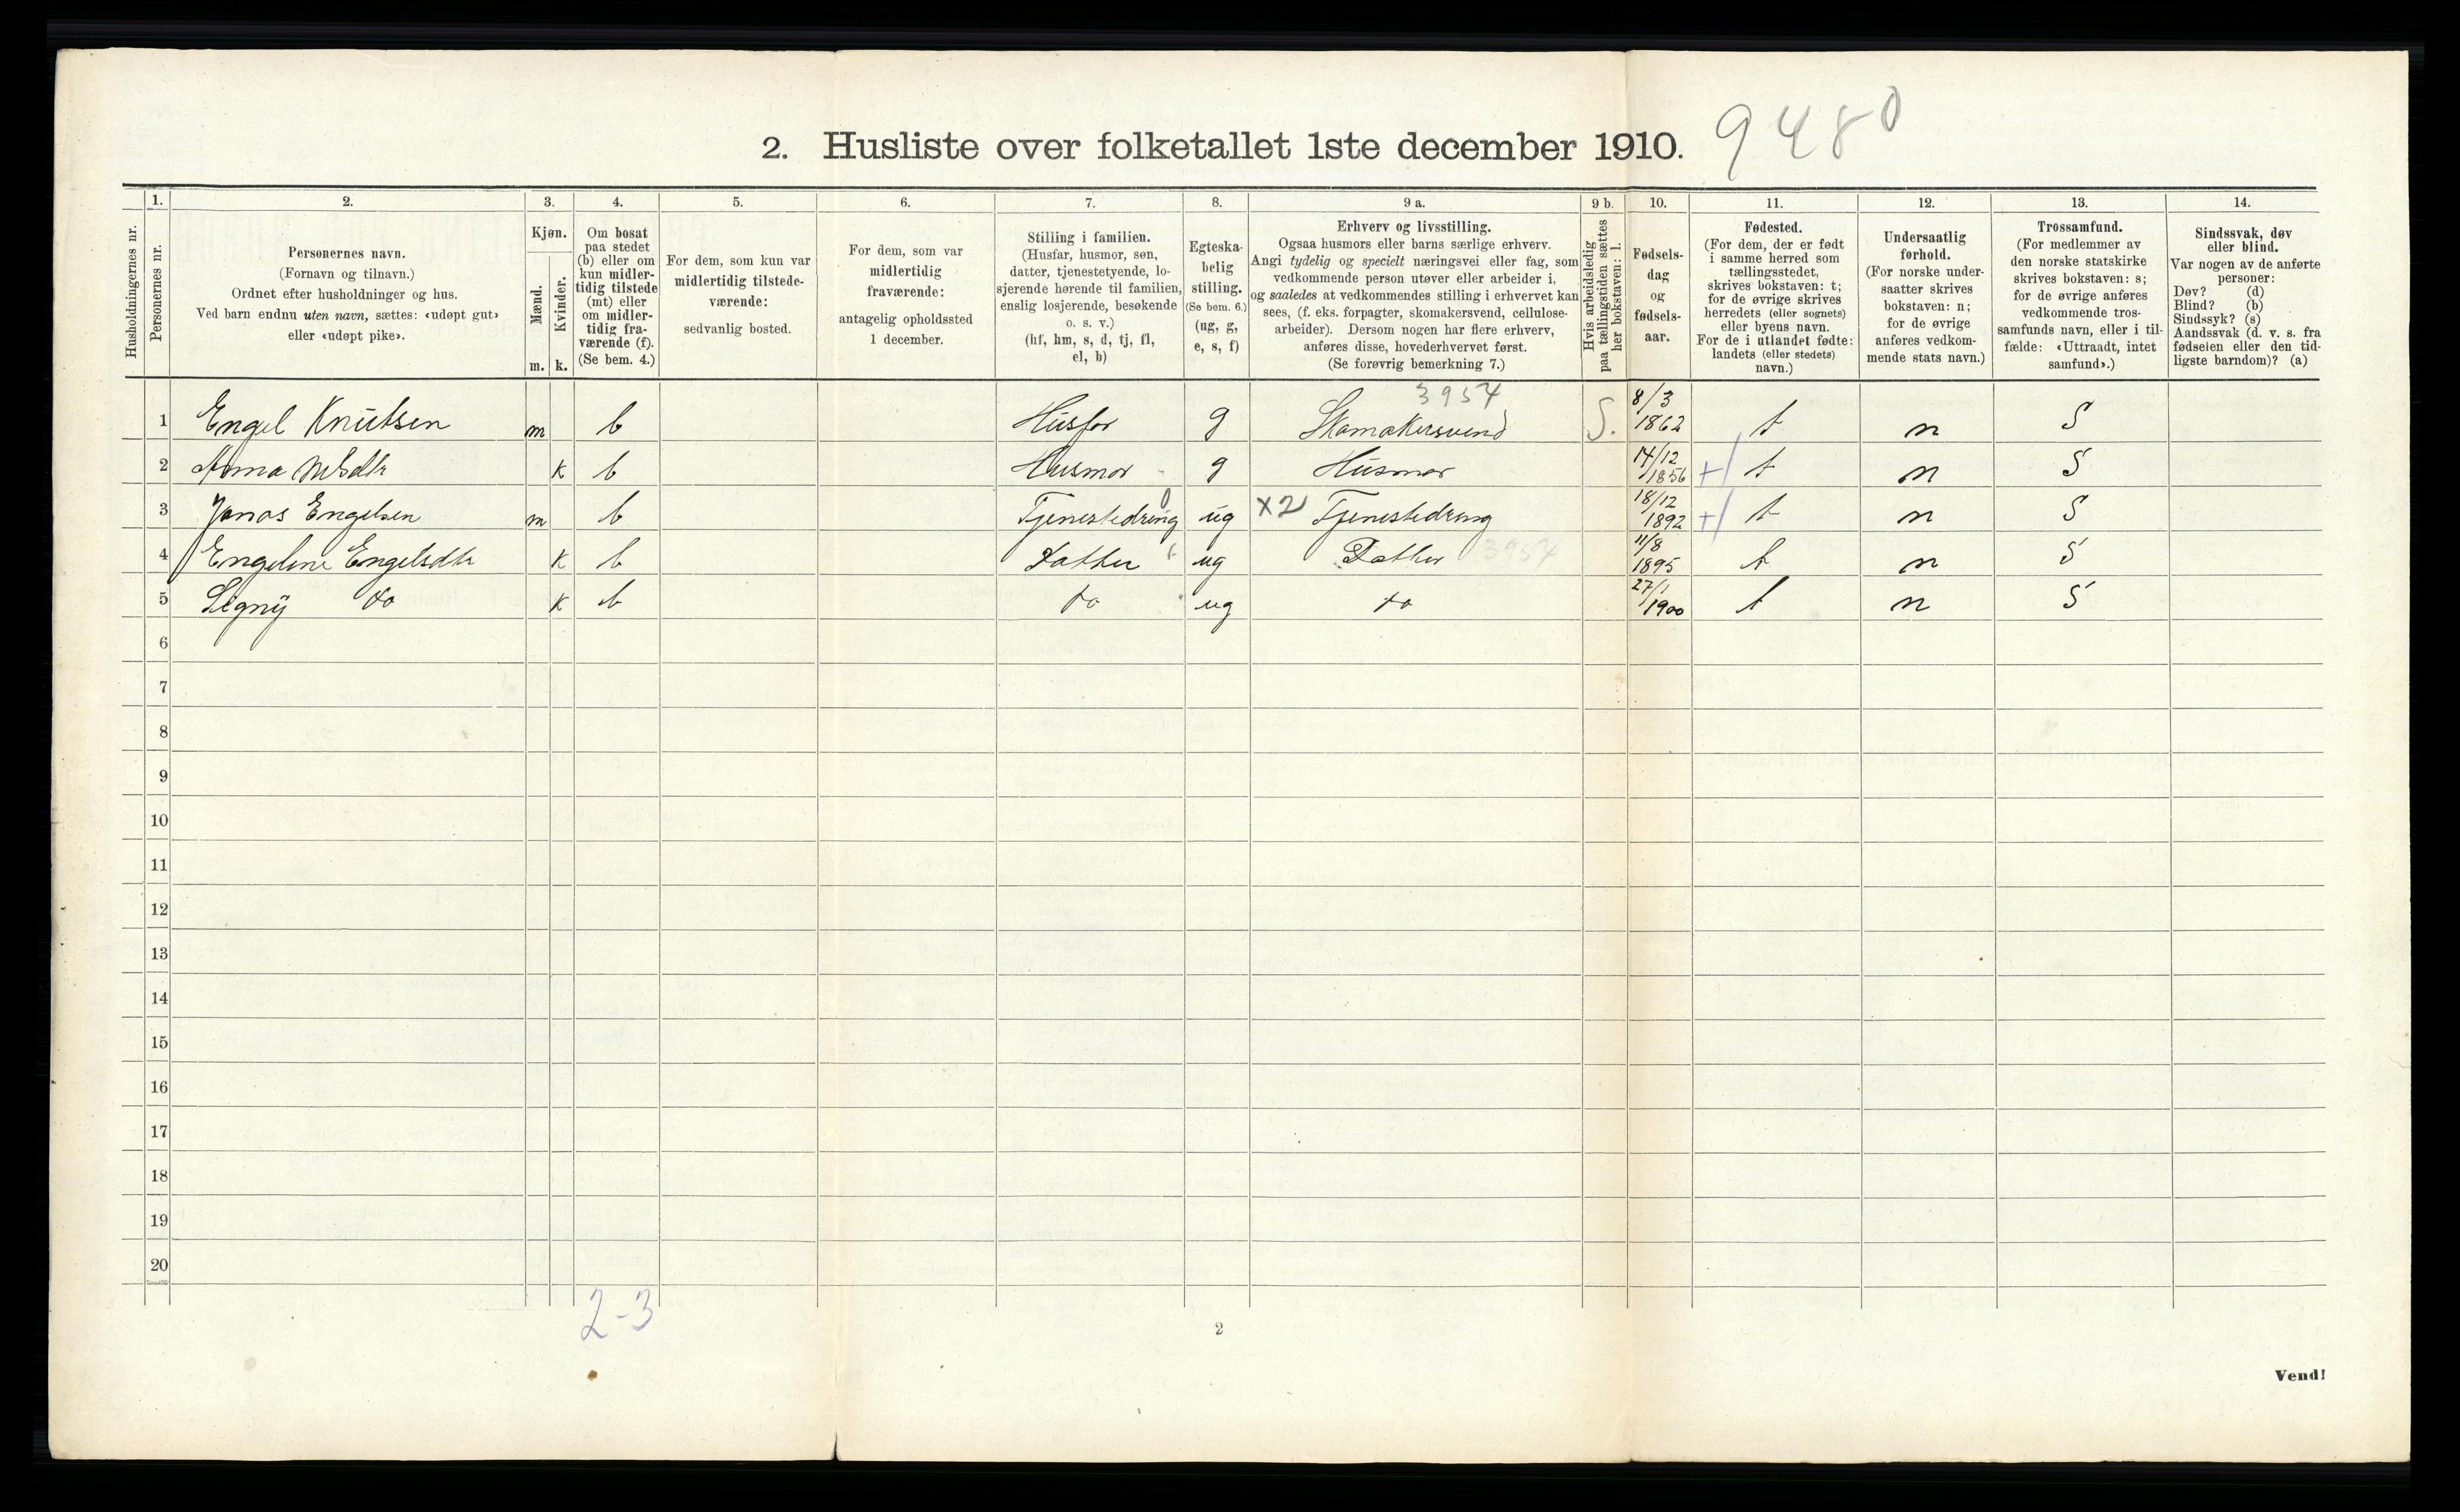 2. Husliste over folketallet 1ste december 1910. 9480
Husholdningernes nr.
1.
Personernes nr.
2.
Personernes navn.
(Fornavn og tilnavn.)
Ordnet efter husholdninger og hus.
Ved barn endnu uten navn, sættes: «udøpt gut»
eller «udøpt pike».
3.
Kjøn.
Mænd.
Kvinder.
m. k.
4.
Om bosat
paa stedet
(b) eller om
kun midler-
tidig tilstede
(mt) eller
om midler-
tidig fra-
værende (f).
(Se bem. 4.)
5.
For dem, som kun var
midlertidig tilstede-
værende:
sedvanlig bosted.
6.
For dem, som var
midlertidig
fraværende:
antagelig opholdssted
1 december.
7.
Stilling i familien.
(Husfar, husmor, søn,
datter, tjenestetyende, lo-
sjerende hørende til familien,
enslig losjerende, besøkende
o. s. v.)
(hf, hm, s, d, tj, fl,
el, b)
8.
Egteska-
belig
stilling.
(Se bem. 6.)
(ug, g,
e, s, f)
9 a.
Erhverv og livsstilling.
Ogsaa husmors eller barns særlige erhverv.
Angi tydelig og specielt næringsvei eller fag, som
vedkommende person utøver eller arbeider i,
og saaledes at vedkommendes stilling i erhvervet kan
sees, (f. eks. forpagter, skomakersvend, cellulose-
arbeider). Dersom nogen har flere erhverv,
anføres disse, hovederhvervet først.
(Se forøvrig bemerkning 7.)
9 b.
Hvis arbeidsledig
paa tællingstiden sættes
her bokstaven: l.
10.
Fødsels-
dag
og
fødsels-
aar.
11.
Fødested.
(For dem, der er født
i samme herred som
tællingsstedet,
skrives bokstaven: t;
for de øvrige skrives
herredets (eller sognets)
eller byens navn.
For de i utlandet fødte:
landets (eller stedets)
navn.)
12.
Undersaatlig
forhold.
(For norske under-
saatter skrives
bokstaven: n;
for de øvrige
anføres vedkom-
mende stats navn.)
13.
Trossamfund.
(For medlemmer av
den norske statskirke
skrives bokstaven: s;
for de øvrige anføres
vedkommende tros-
samfunds navn, eller i til-
fælde: «Uttraadt, intet
samfund».)
14.
Sindssvak, døv
eller blind.
Var nogen av de anførte
personer:
Døv? (d)
Blind? (b)
Sindssyk? (s)
Aandssvak (d. v. s. fra
fødselen eller den tid-
ligste barndom)? (a)
3954
1 Engel Knutsen m b Husfar g Skomakersvend S. 8/3 1862 t n S
2 Anna k b Husmor g Husmor 14/12 1856 t n S
3 Jonas Engelsen m b Tjenestedreng ug x2 Tjenestedreng 18/12 1892 t n S
4 Engeline Engelsdtr k b Datter ug Datter 3954 11/8 1895 t n S
5 Signy do k b do ug do 27/1 1900 t n S
6
7
8
9
10
11
12
13
14
15
16
17
18
19
20
2-3
2
Vend!